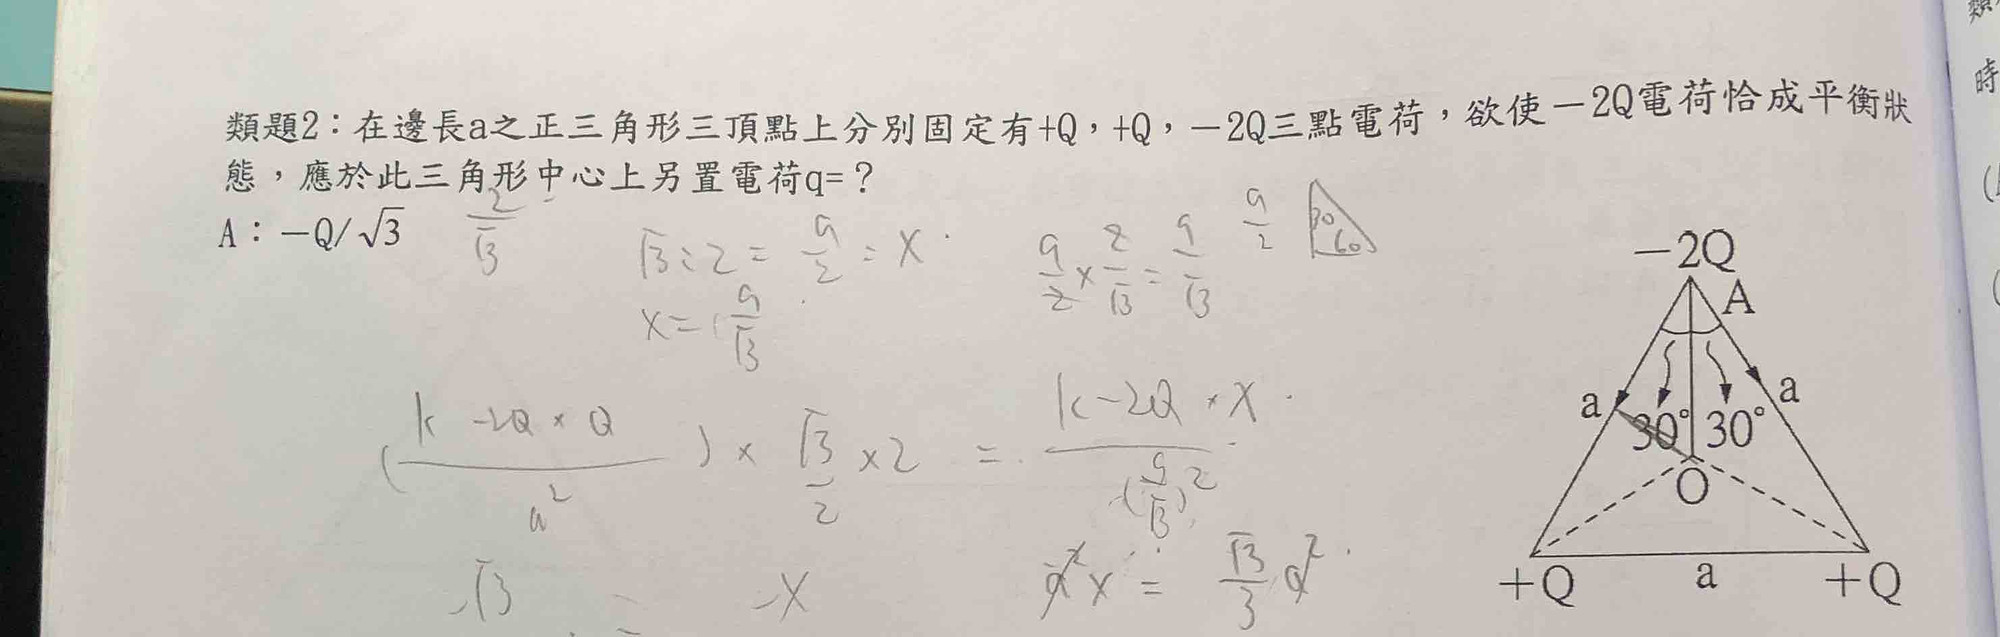 類題2：在邊長a之正三角形三頂點上分別固定有+Q，+Q，－2Q三點電荷，欲使－2Q電荷恰成平衡狀
態，應於此三角形中心上另置電荷q=？
A：－Q/√3
2/√3
√3:2 = a/2 : x
x = a/√3
a/2 × 2/√3 = a/√3
a/2
30
60
(k -2Q × Q / a²) × √3/2 × 2 = k -2Q × X / (a/√3)²
a²x = √3/3 a²
-2Q
A
a
a
30° 30°
O
+Q
a
+Q
時